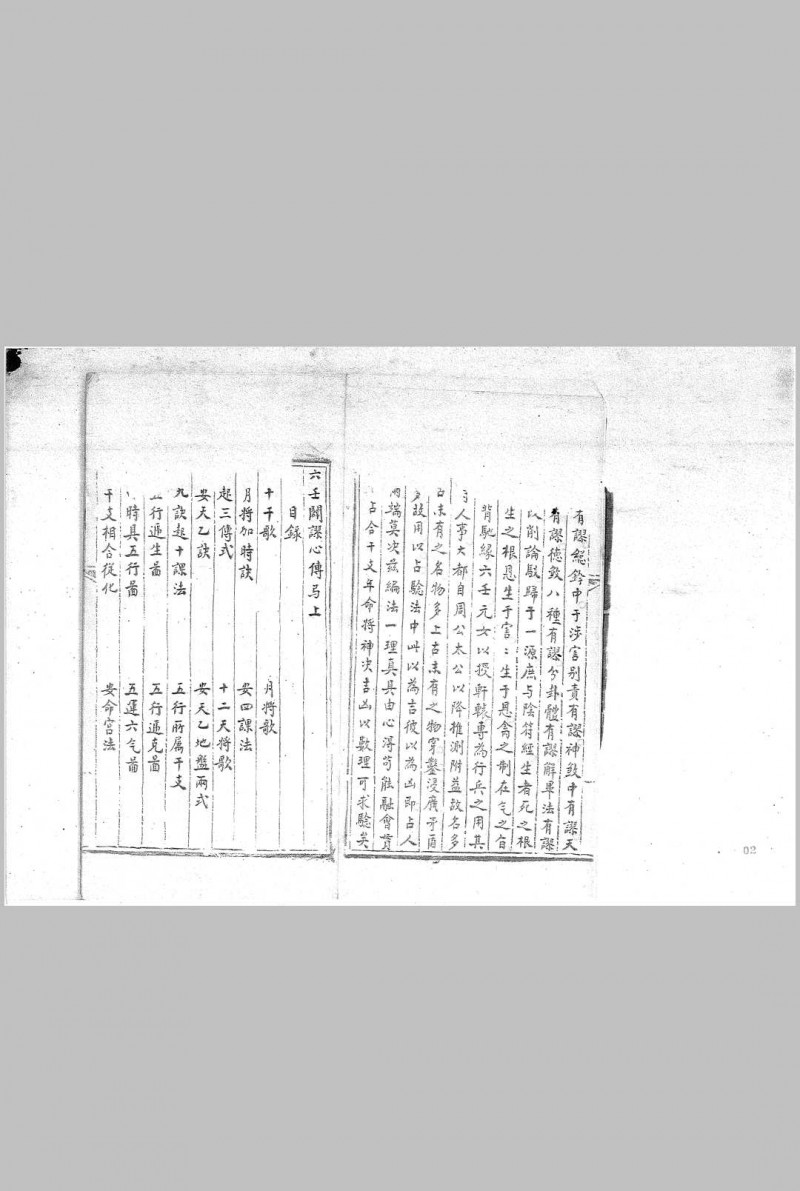 有謬總鈐中于涉害别責有謬神煞中有謬天
有謬德歌八種有謬分卦體有謬解畢法有謬
以削論駁歸于一源庶与陰符經生者死之根
生之根恩生于害：生于恩禽之制在气之自
背馳緣六壬元女以授軒轅專為行兵之用其
人事大都自周公太公以降推測附益故名多
古未有之名物多上古未有之物穿鑿浸廣矛盾
故用以占驗法中此以為吉彼以為凶即占人
两端莫决茲編法一理真具由心得苟能融會貫
占合干支年命將神决吉凶以數理可求驗矣
六壬闢謬心傳马上
目錄
十干歌 月將歌
月將加時訣 安四課法
起三傳式 十二天將歌
安天乙訣 安天乙地盤兩式
九訣起十課法 五行所属干支
五行遞生啚 五行遞克啚
時具五行啚 五運六气啚
干支相合從化 安命宫法
02